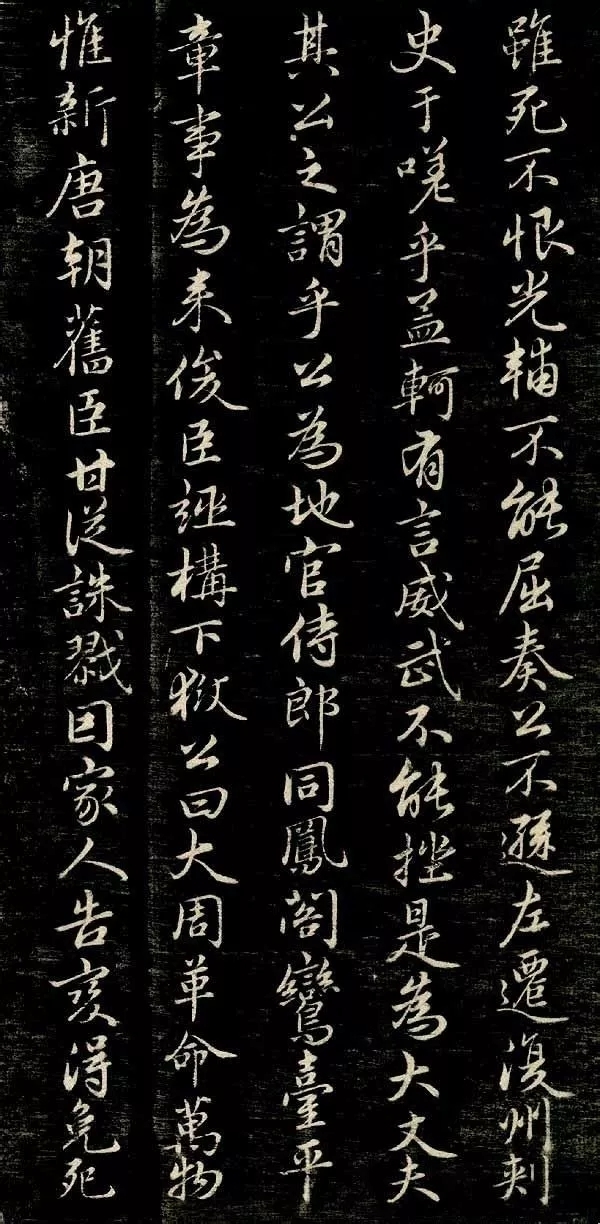 雖死不恨光輔不能屈奏公不遜左遷復州刺
史于嗟乎孟軻有言威武不能挫是為大丈夫
其公之謂乎公為地官侍郎同鳳閣鸞臺平
章事為来俊臣誣構下獄公曰大周革命萬物
惟新唐朝舊臣甘従誅戮因家人告変得免死